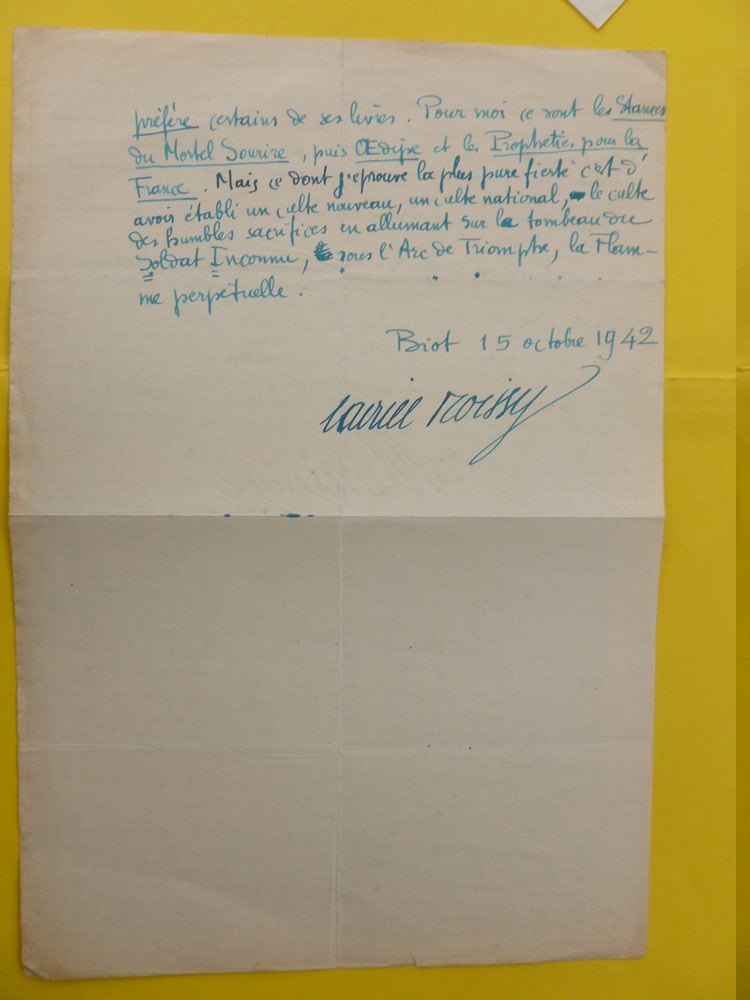 préfére certains de ses livres. Pour moi ce sont les Stances
du Mortel Sourire, puis Œdipe et les Propheties pour la
France. Mais ce dont j'eprouve la plus pure fierté c'est d'
avoir établi un culte nouveau, un culte national, le culte
des humbles sacrifices en allumant sur le tombeau du
Soldat Inconnu, sous l'Arc de Triomphe, la Flam-
me perpétuelle.
Biot 15 octobre 1942
Gabriel Boissy